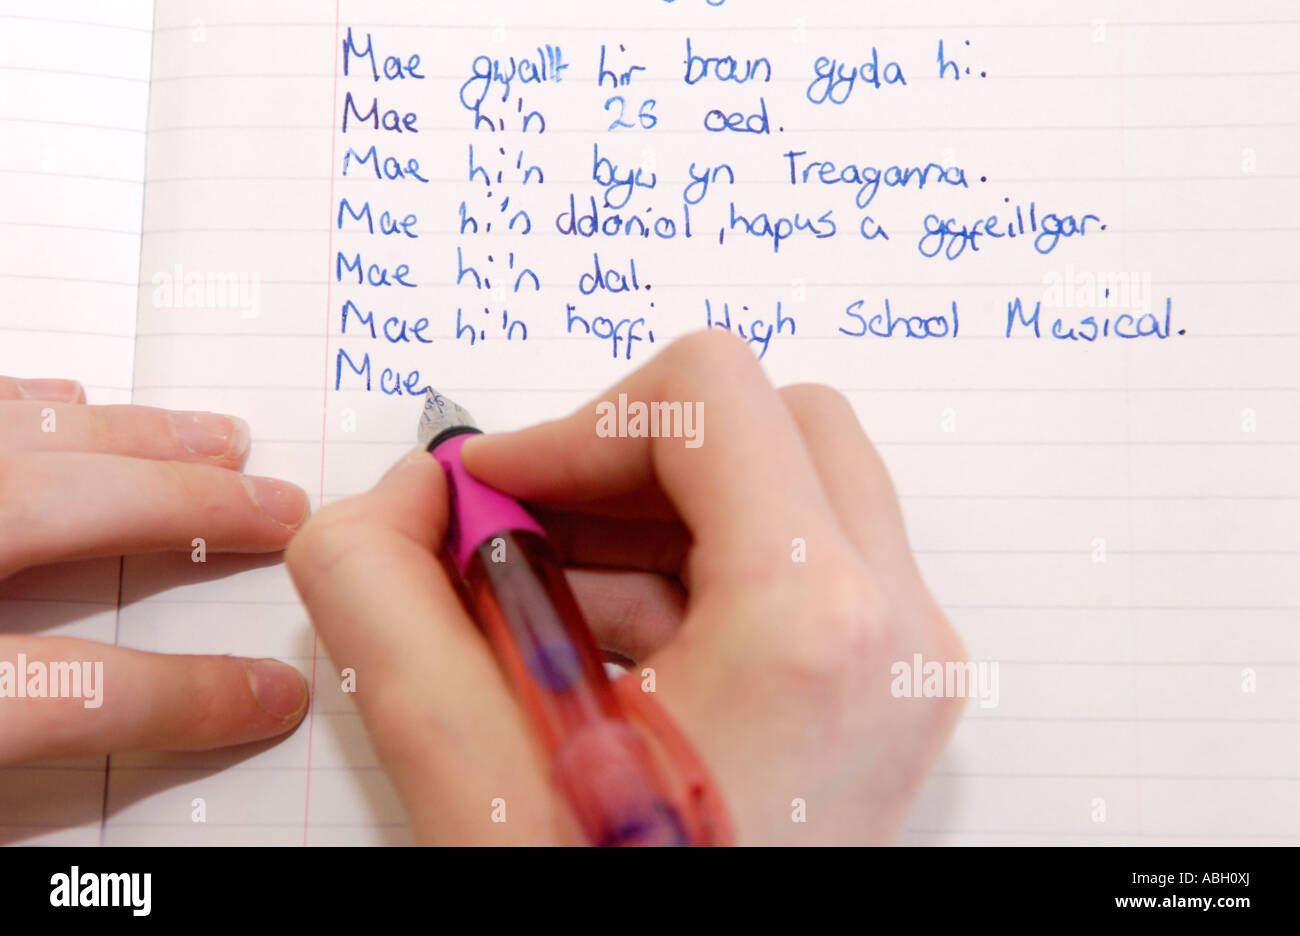 Mae gwallt hir broun gyda hi.
Mae hi'n 26 oed.
Mae hi'n byw yn Treaganna.
Mae hi'n ddoniol, hapus a gyfeillgar.
Mae hi'n dal.
Mae hi'n hoffi High School Musical.
Mae
alamy
Image ID: ABH0XJ
www.alamy.com